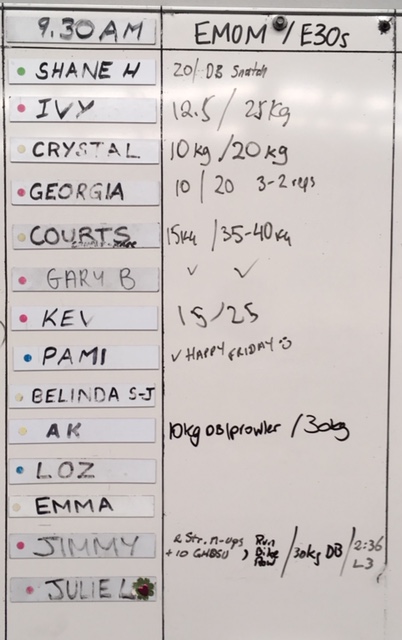 9.30AM EMOM/E30s
SHANE H 20/ DB Snatch
IVY 12.5/25kg
CRYSTAL 10kg/20kg
GEORGIA 10/20 3-2 reps
COURTS 15kg/35-40kg
GARY B ✓ ✓
KEV 15/25
PAMI ✓ HAPPY FRIDAY ☺
BELINDA S-J
AK 10kg DB/prowler /30kg
LOZ
EMMA
JIMMY 2 Str. m-ups Run /30kg DB /2:36
+10 GHDSU, Bike L3
Row
JULIE L